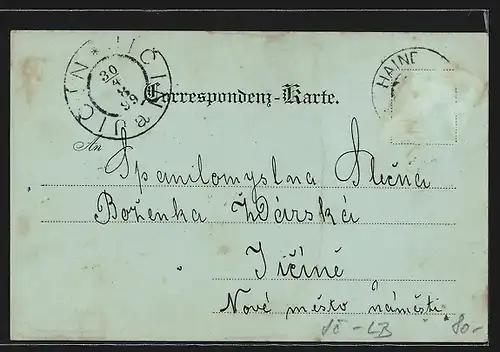 JIČÍN * JIČIN
30
4
99
a
HAIND
Correspondenz-Karte.
An
Spanilomyslna Slečna
Boženka Žďárská
Jičíně
Nové město náměstí.
Jč - LB 80.-